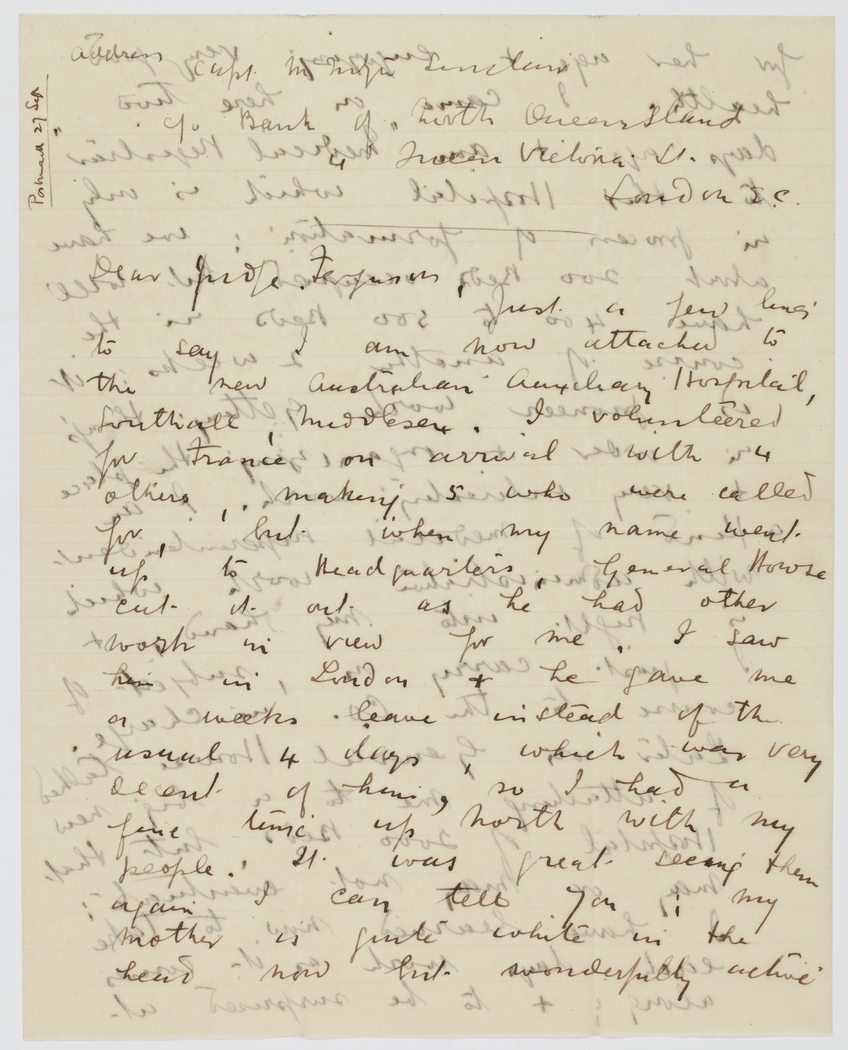 Postmark 27 Sep
address
Capt. Sinclair
c/o Bank of North Queensland
4 Queen Victoria St.
London E.C.
Dear Judge Ferguson,
Just a few lines
to say I am now attached to
the new Australian Auxiliary Hospital,
Southall, Middlesex. I volunteered
for France on arrival with 4
others, making 5 who were called
for, but when my name went
up to Headquarters, General Howse
cut it out as he had other
work in view for me. I saw
him in London + he gave me
a weeks leave instead of the
usual 4 days, which was very
decent of him, so I had a
fine time up North with my
people. It was great seeing them
again I can tell you; my
mother is quite white in the
head now but wonderfully active